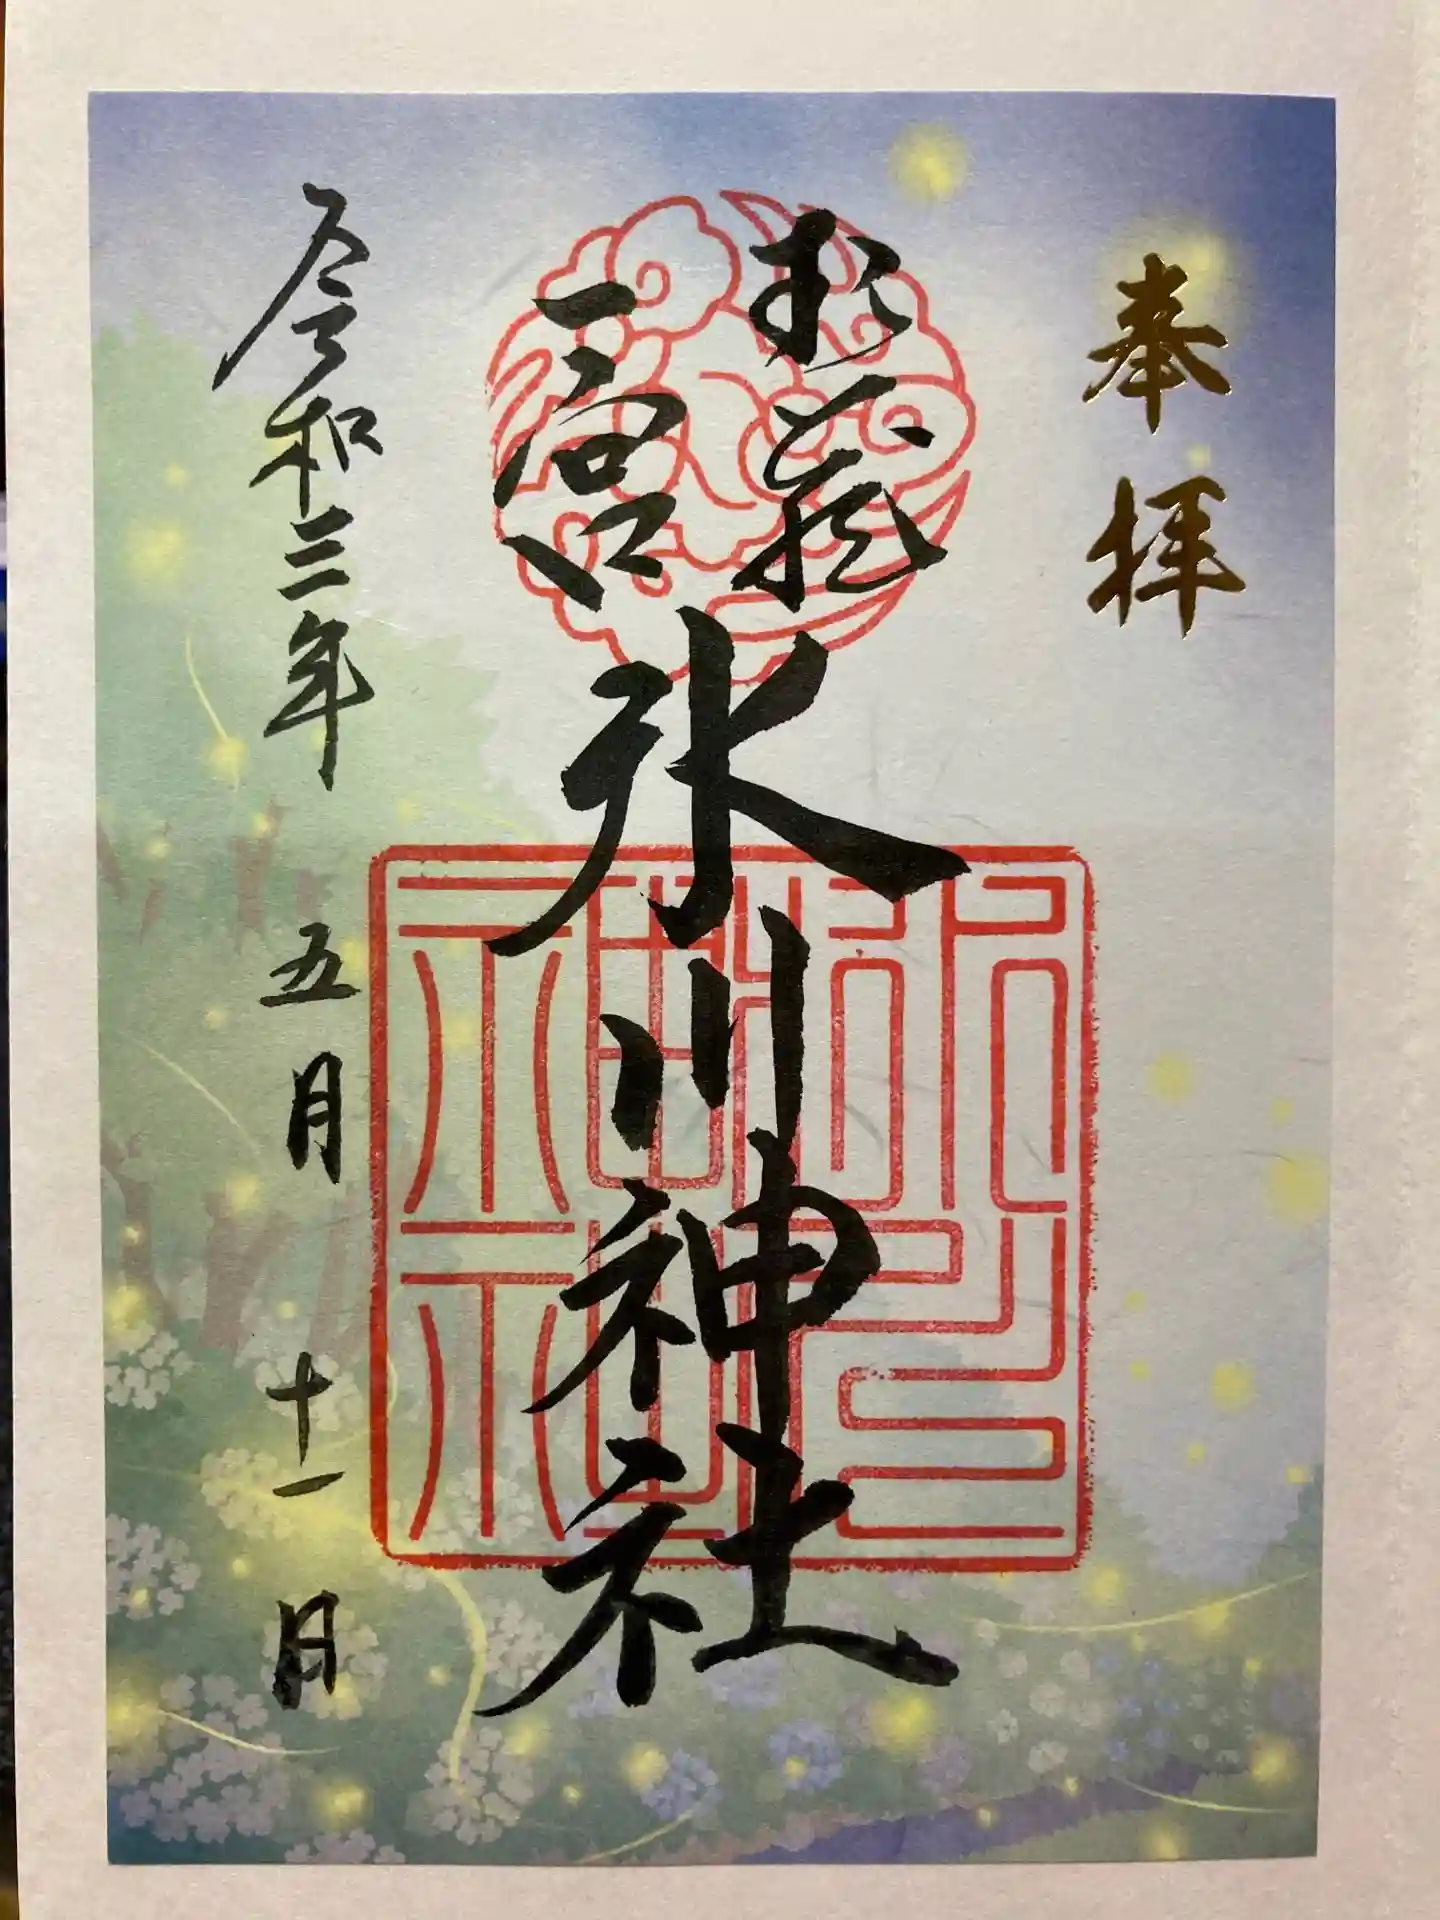 奉拝
武蔵
一宮
氷川神社
令和三年 五月 十一日